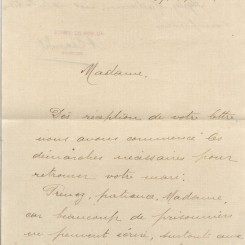 Madame,
Dès réception de votre lettre
nous avons commencé les
démarches nécéssaires pour
retrouver votre mari.
Prenez patience, Madame,
car beaucoup de prisonniers
ne peuvent écrire, surtout aux